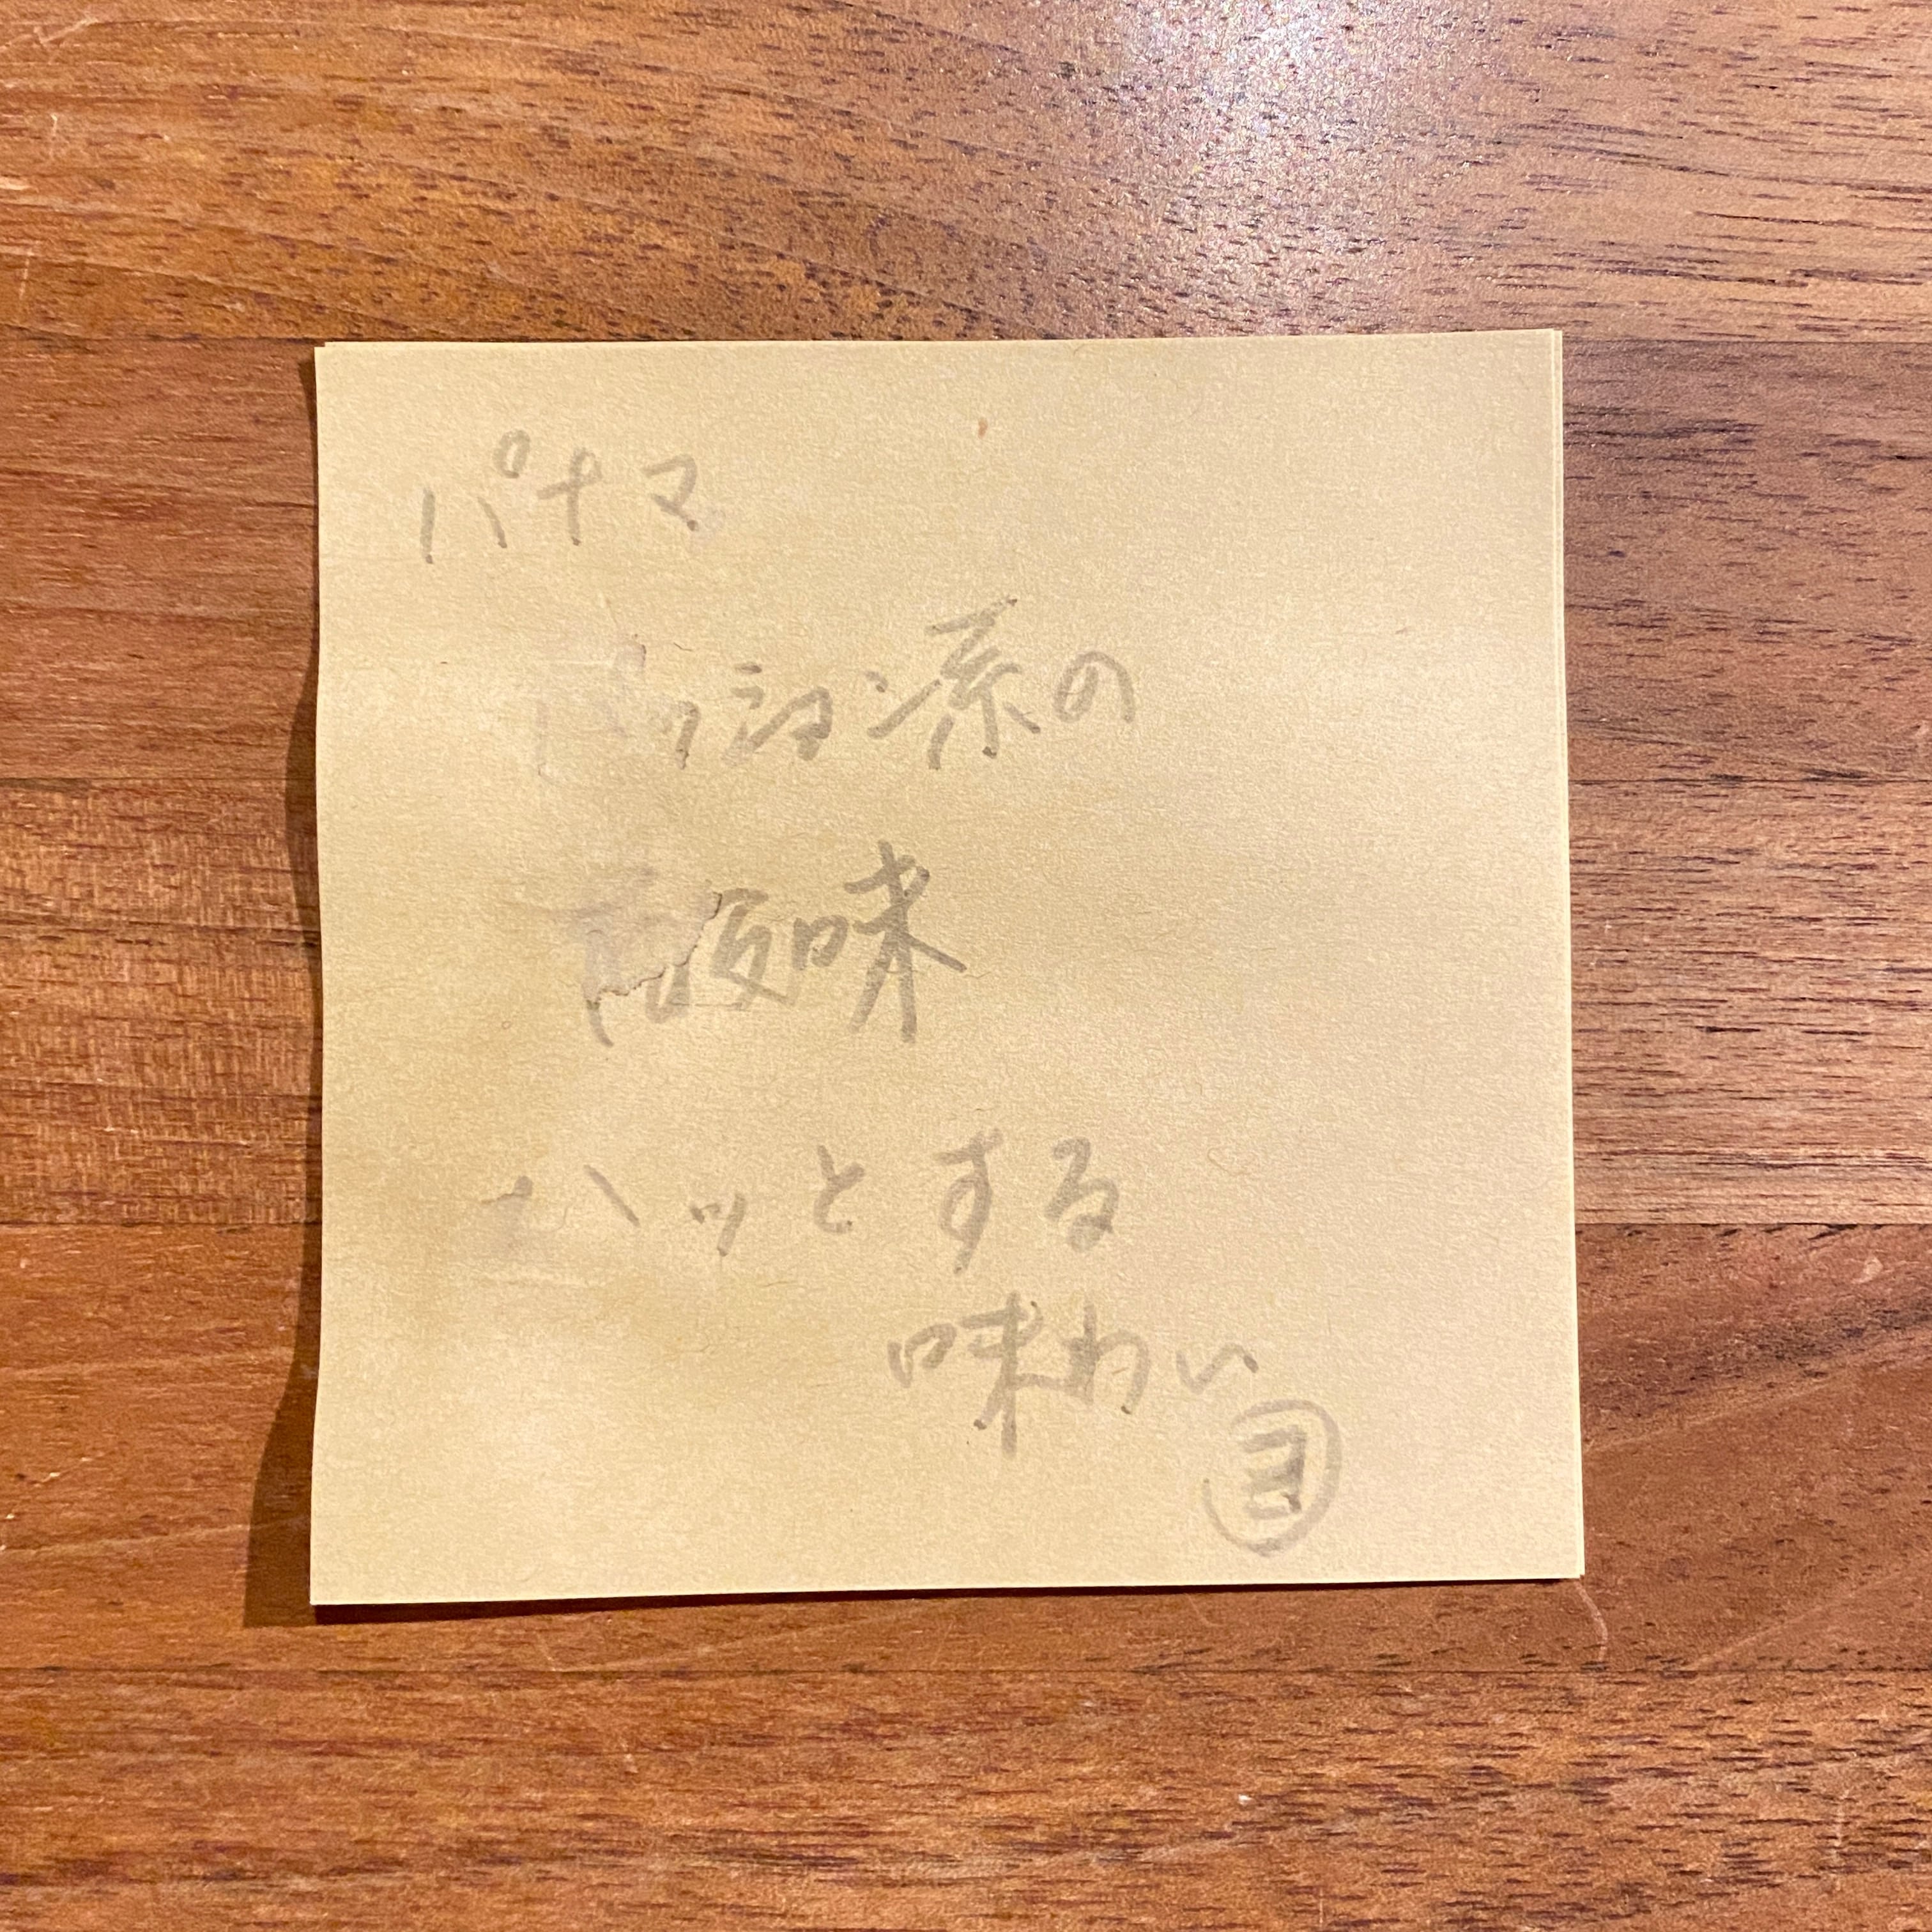 パナマ
パッション系の
酸味
ハッとする
味わい
ヨ